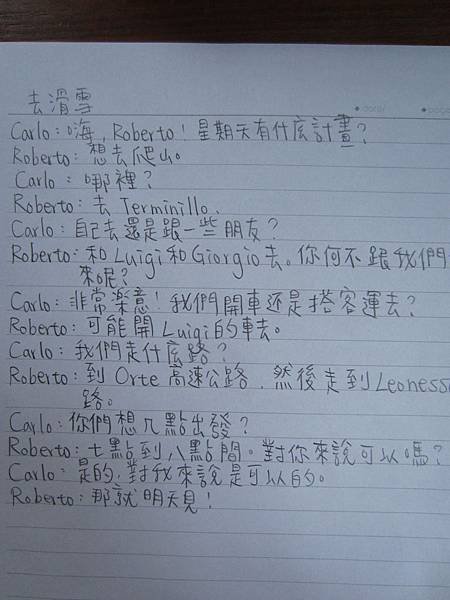 去滑雪
Carlo：嗨，Roberto！星期天有什庅計畫？
Roberto：想去爬山。
Carlo：哪裡？
Roberto：去 Terminillo.
Carlo：自己去還是跟一些朋友？
Roberto：和Luigi和Giorgio去。你何不跟我們一
來呢？
Carlo：非常楽意！我們開車还是搭客運去？
Roberto：可能開Luigi的車去。
Carlo：我們走什庅路？
Roberto：到 Orte 高速公路，然後走到Leonessa
路。
Carlo：你們想几點出發？
Roberto：七點到八點間。對你來說可以嗎？
Carlo：是的，對我來說是可以的。
Roberto：那就明天見！